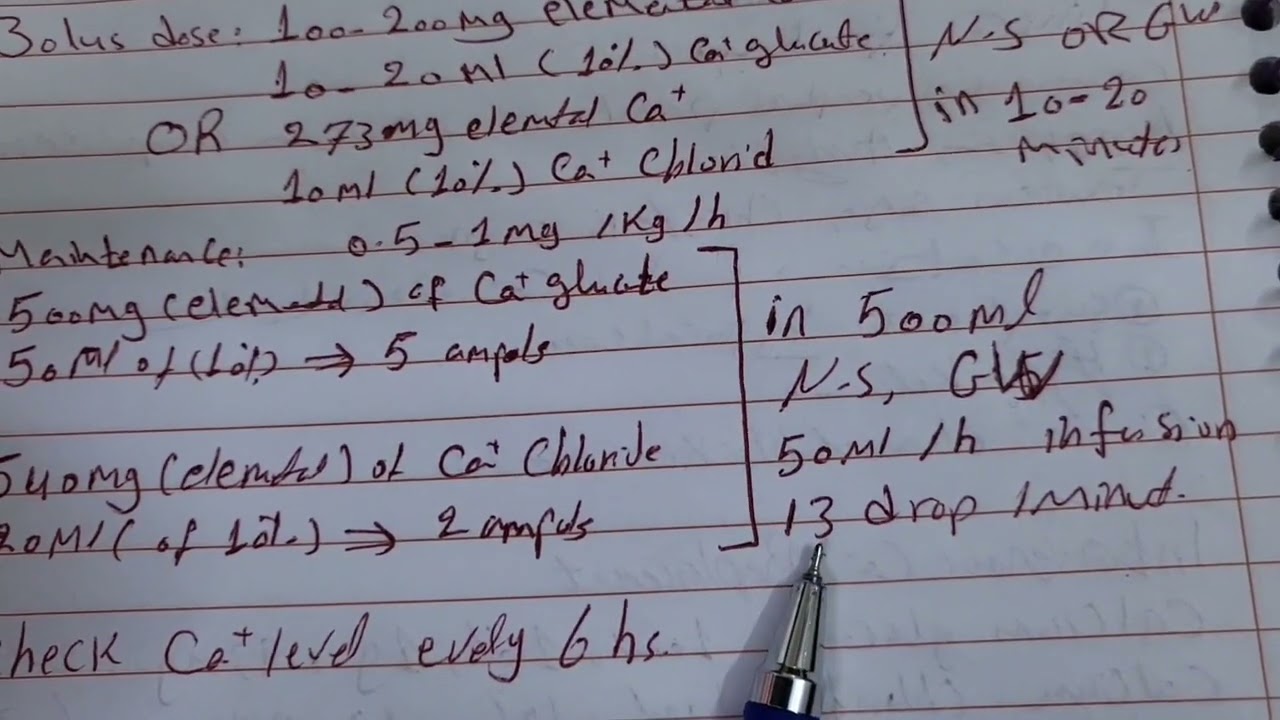 Bolus dose: 100-200mg elemental
10-20ml (10%) Ca+ glucate
OR 273mg elemtal Ca+
10ml (10%) Ca+ Chlorid
N.S OR GW
in 10-20
Minutes
Maintenance: 0.5-1mg /Kg/h
500mg (elemtal) of Ca+ glucate
50ml of (10%) → 5 ampols
540mg (elemtal) of Ca+ Chloride
20Ml (of 10%) → 2 ampols
in 500ml
N.S, GW
50Ml /h infusion
13 drop /Minut.
Check Ca+ level every 6 hs.